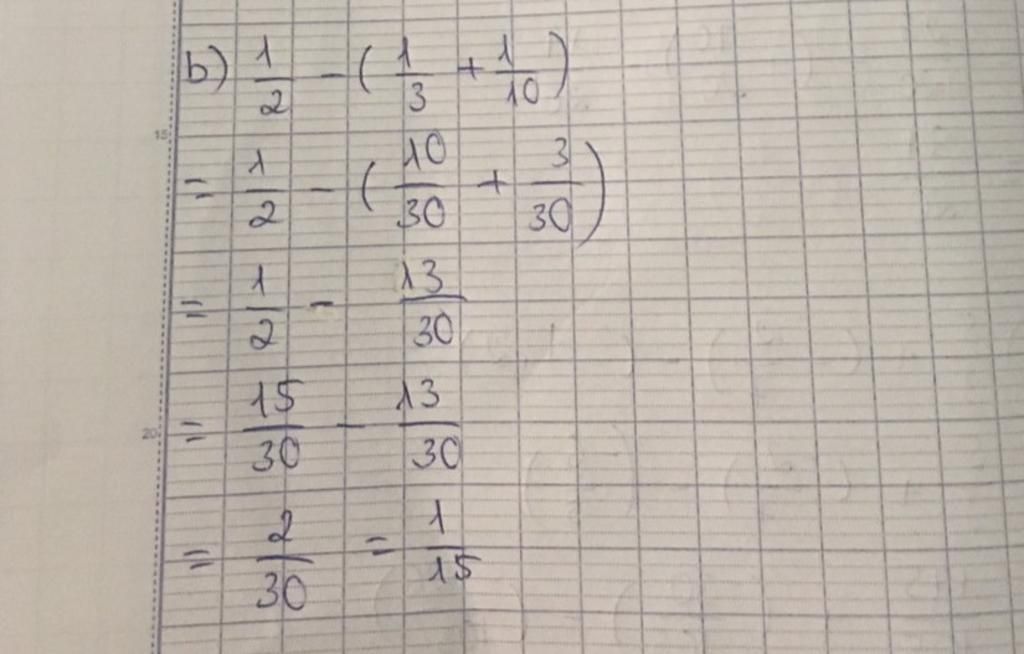 b) 1/2 - ( 1/3 + 1/10 )
15
= 1/2 - ( 10/30 + 3/30 )
= 1/2 - 13/30
20
= 15/30 - 13/30
= 2/30 = 1/15